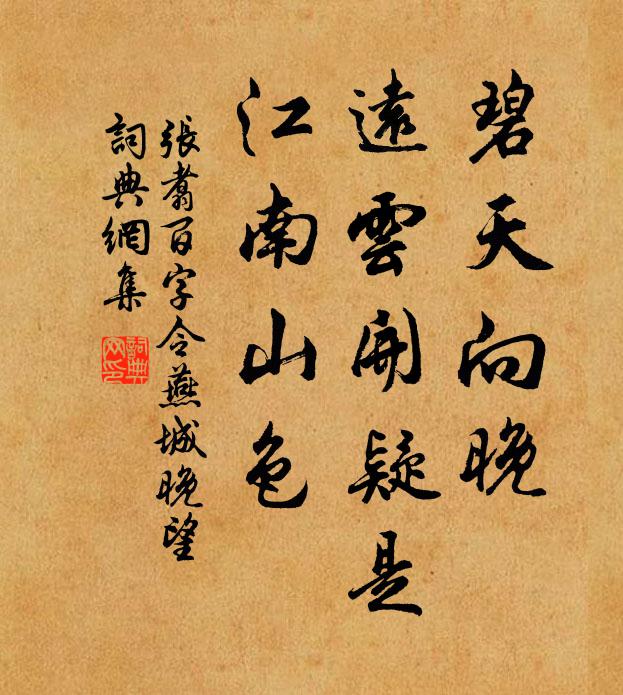 碧天向晚
遠雲開疑是
江南山色
張翥百字令燕城晚望
詞典網集
詞典網印